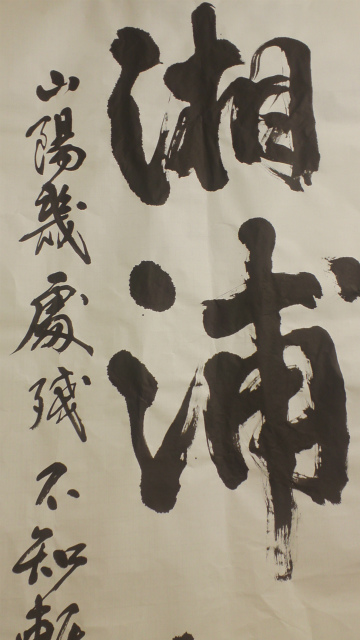 湘浦
山陽幾處殘不知